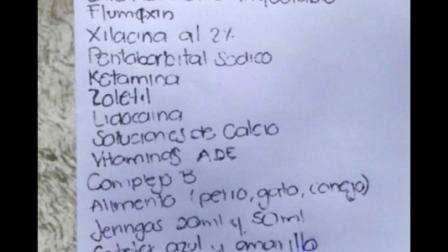 Flumoxin
Xilacina al 2%
Pentabarbital Sodico
Ketamina
Zoletil
Lidocaina
Soluciones de Calcio
Vitaminas ADE
Complejo B
Alimento (perro, gato, conejo)
Jeringas 20ml y 50ml
azul y amarillo